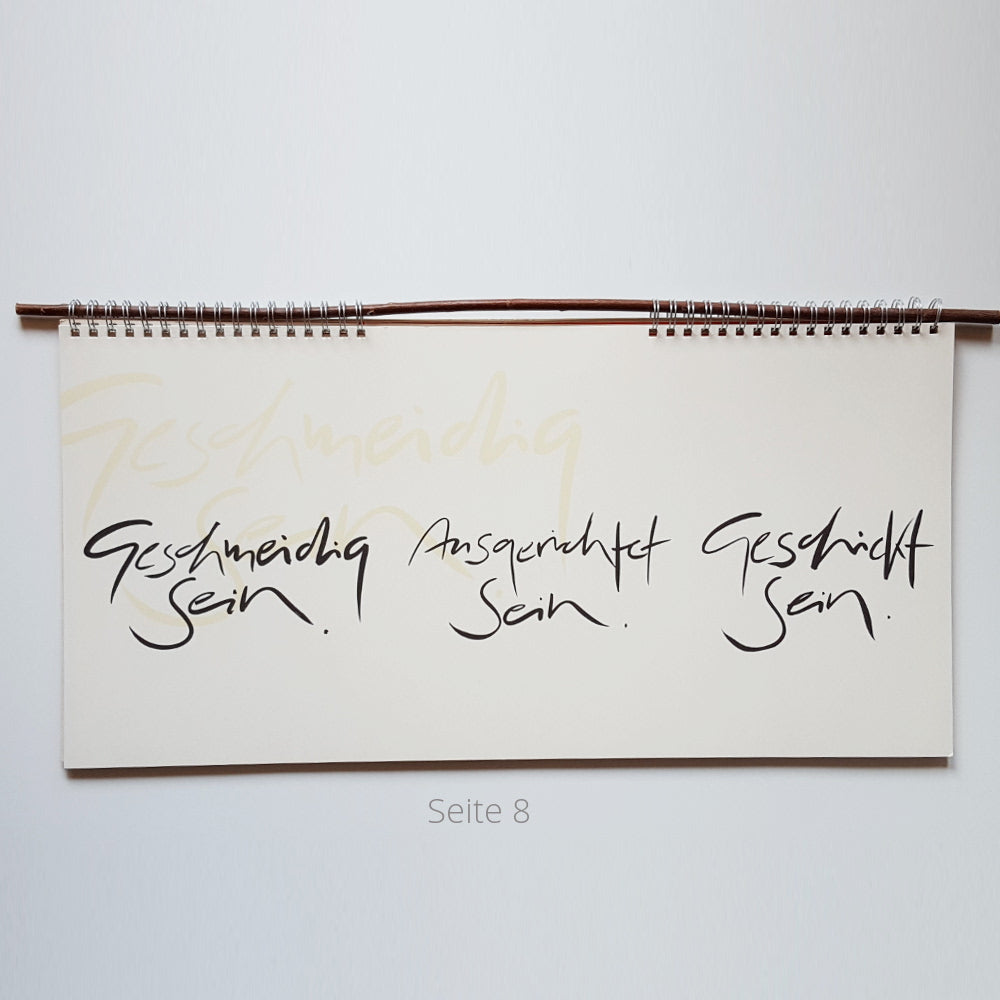 Geschmeidig
Sein
Geschmeidig
Sein.
Ausgerichtet
Sein.
Geschickt
Sein.
Seite 8